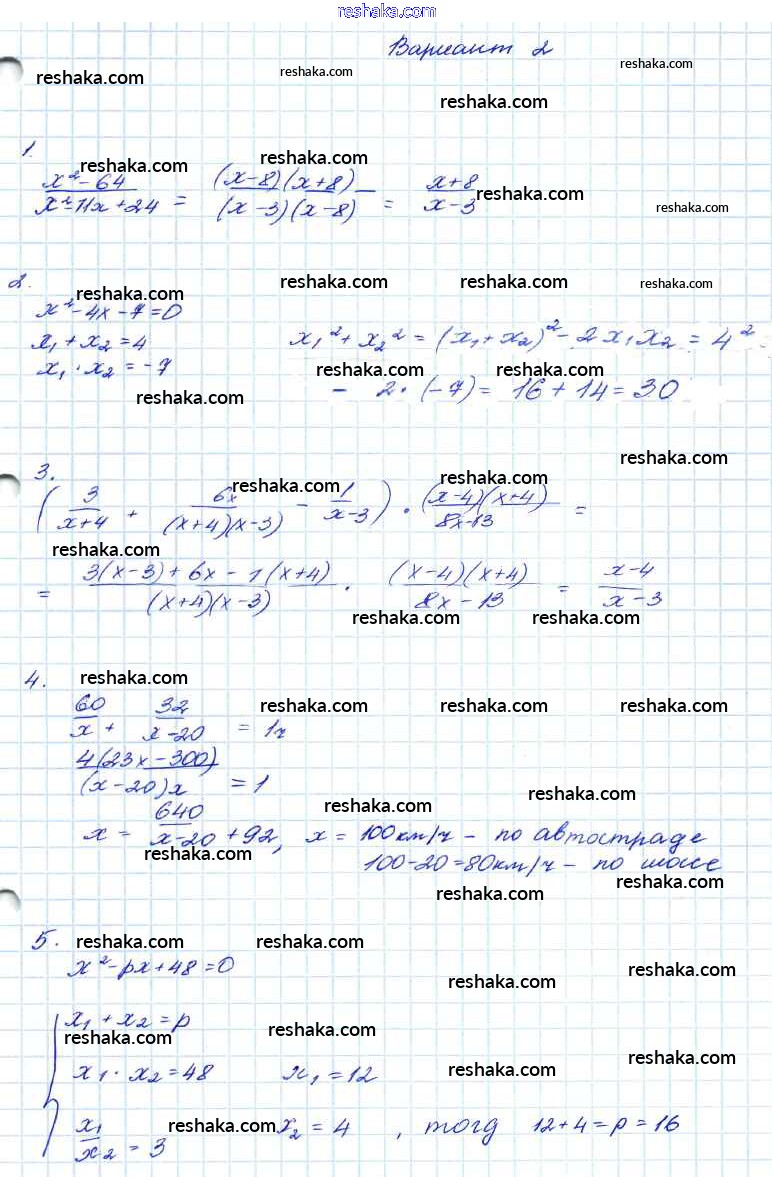 reshaka.com
Вариант 2
reshaka.com reshaka.com reshaka.com
reshaka.com
1.
reshaka.com reshaka.com
x² - 64 / x² - 11x + 24 = (x-8)(x+8) / (x-3)(x-8) = x+8 / x-3
reshaka.com reshaka.com
2.
reshaka.com reshaka.com reshaka.com reshaka.com
x² - 4x - 7 = 0
x₁ + x₂ = 4 x₁² + x₂² = (x₁ + x₂)² - 2x₁x₂ = 4²
x₁ · x₂ = -7 reshaka.com reshaka.com
reshaka.com - 2 · (-7) = 16 + 14 = 30
reshaka.com
3. reshaka.com reshaka.com
(3 / x+4 + 6x / (x+4)(x-3) - 1 / x-3) · (x-4)(x+4) / 8x-13 =
reshaka.com
= 3(x-3) + 6x - 1(x+4) / (x+4)(x-3) · (x-4)(x+4) / 8x-13 = x-4 / x-3
reshaka.com reshaka.com
4. reshaka.com
60 / x + 32 / x-20 = 1ч
reshaka.com reshaka.com reshaka.com
4(23x - 300) / (x-20)x = 1
reshaka.com reshaka.com
x = 640 / x-20 + 92, x = 100 км/ч - по автостраде
reshaka.com 100-20=80км/ч - по шоссе
reshaka.com reshaka.com
5. reshaka.com reshaka.com
x² - px + 48 = 0
reshaka.com reshaka.com
{ x₁ + x₂ = p
reshaka.com reshaka.com
x₁ · x₂ = 48 x₁ = 12
reshaka.com reshaka.com
x₁ / x₂ = 3 reshaka.com x₂ = 4 , тогд 12+4=p=16